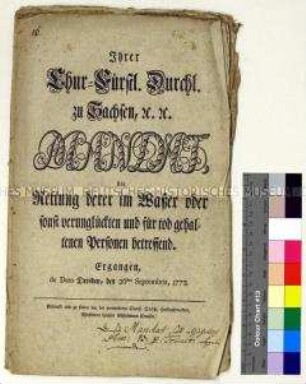 16.
Ihrer
Chur-Fürstl. Durchl.
zu Sachsen, ꝛc. ꝛc.
MANDAT,
die
Rettung derer im Waßer oder
sonst verunglückten und für tod gehal-
tenen Personen betreffend.
Ergangen,
de Dato Dresden, den 26ten Septembris, 1773.
Mandat
Colour Chart #13
DEUTSCHES HISTORISCHES MUSEUM